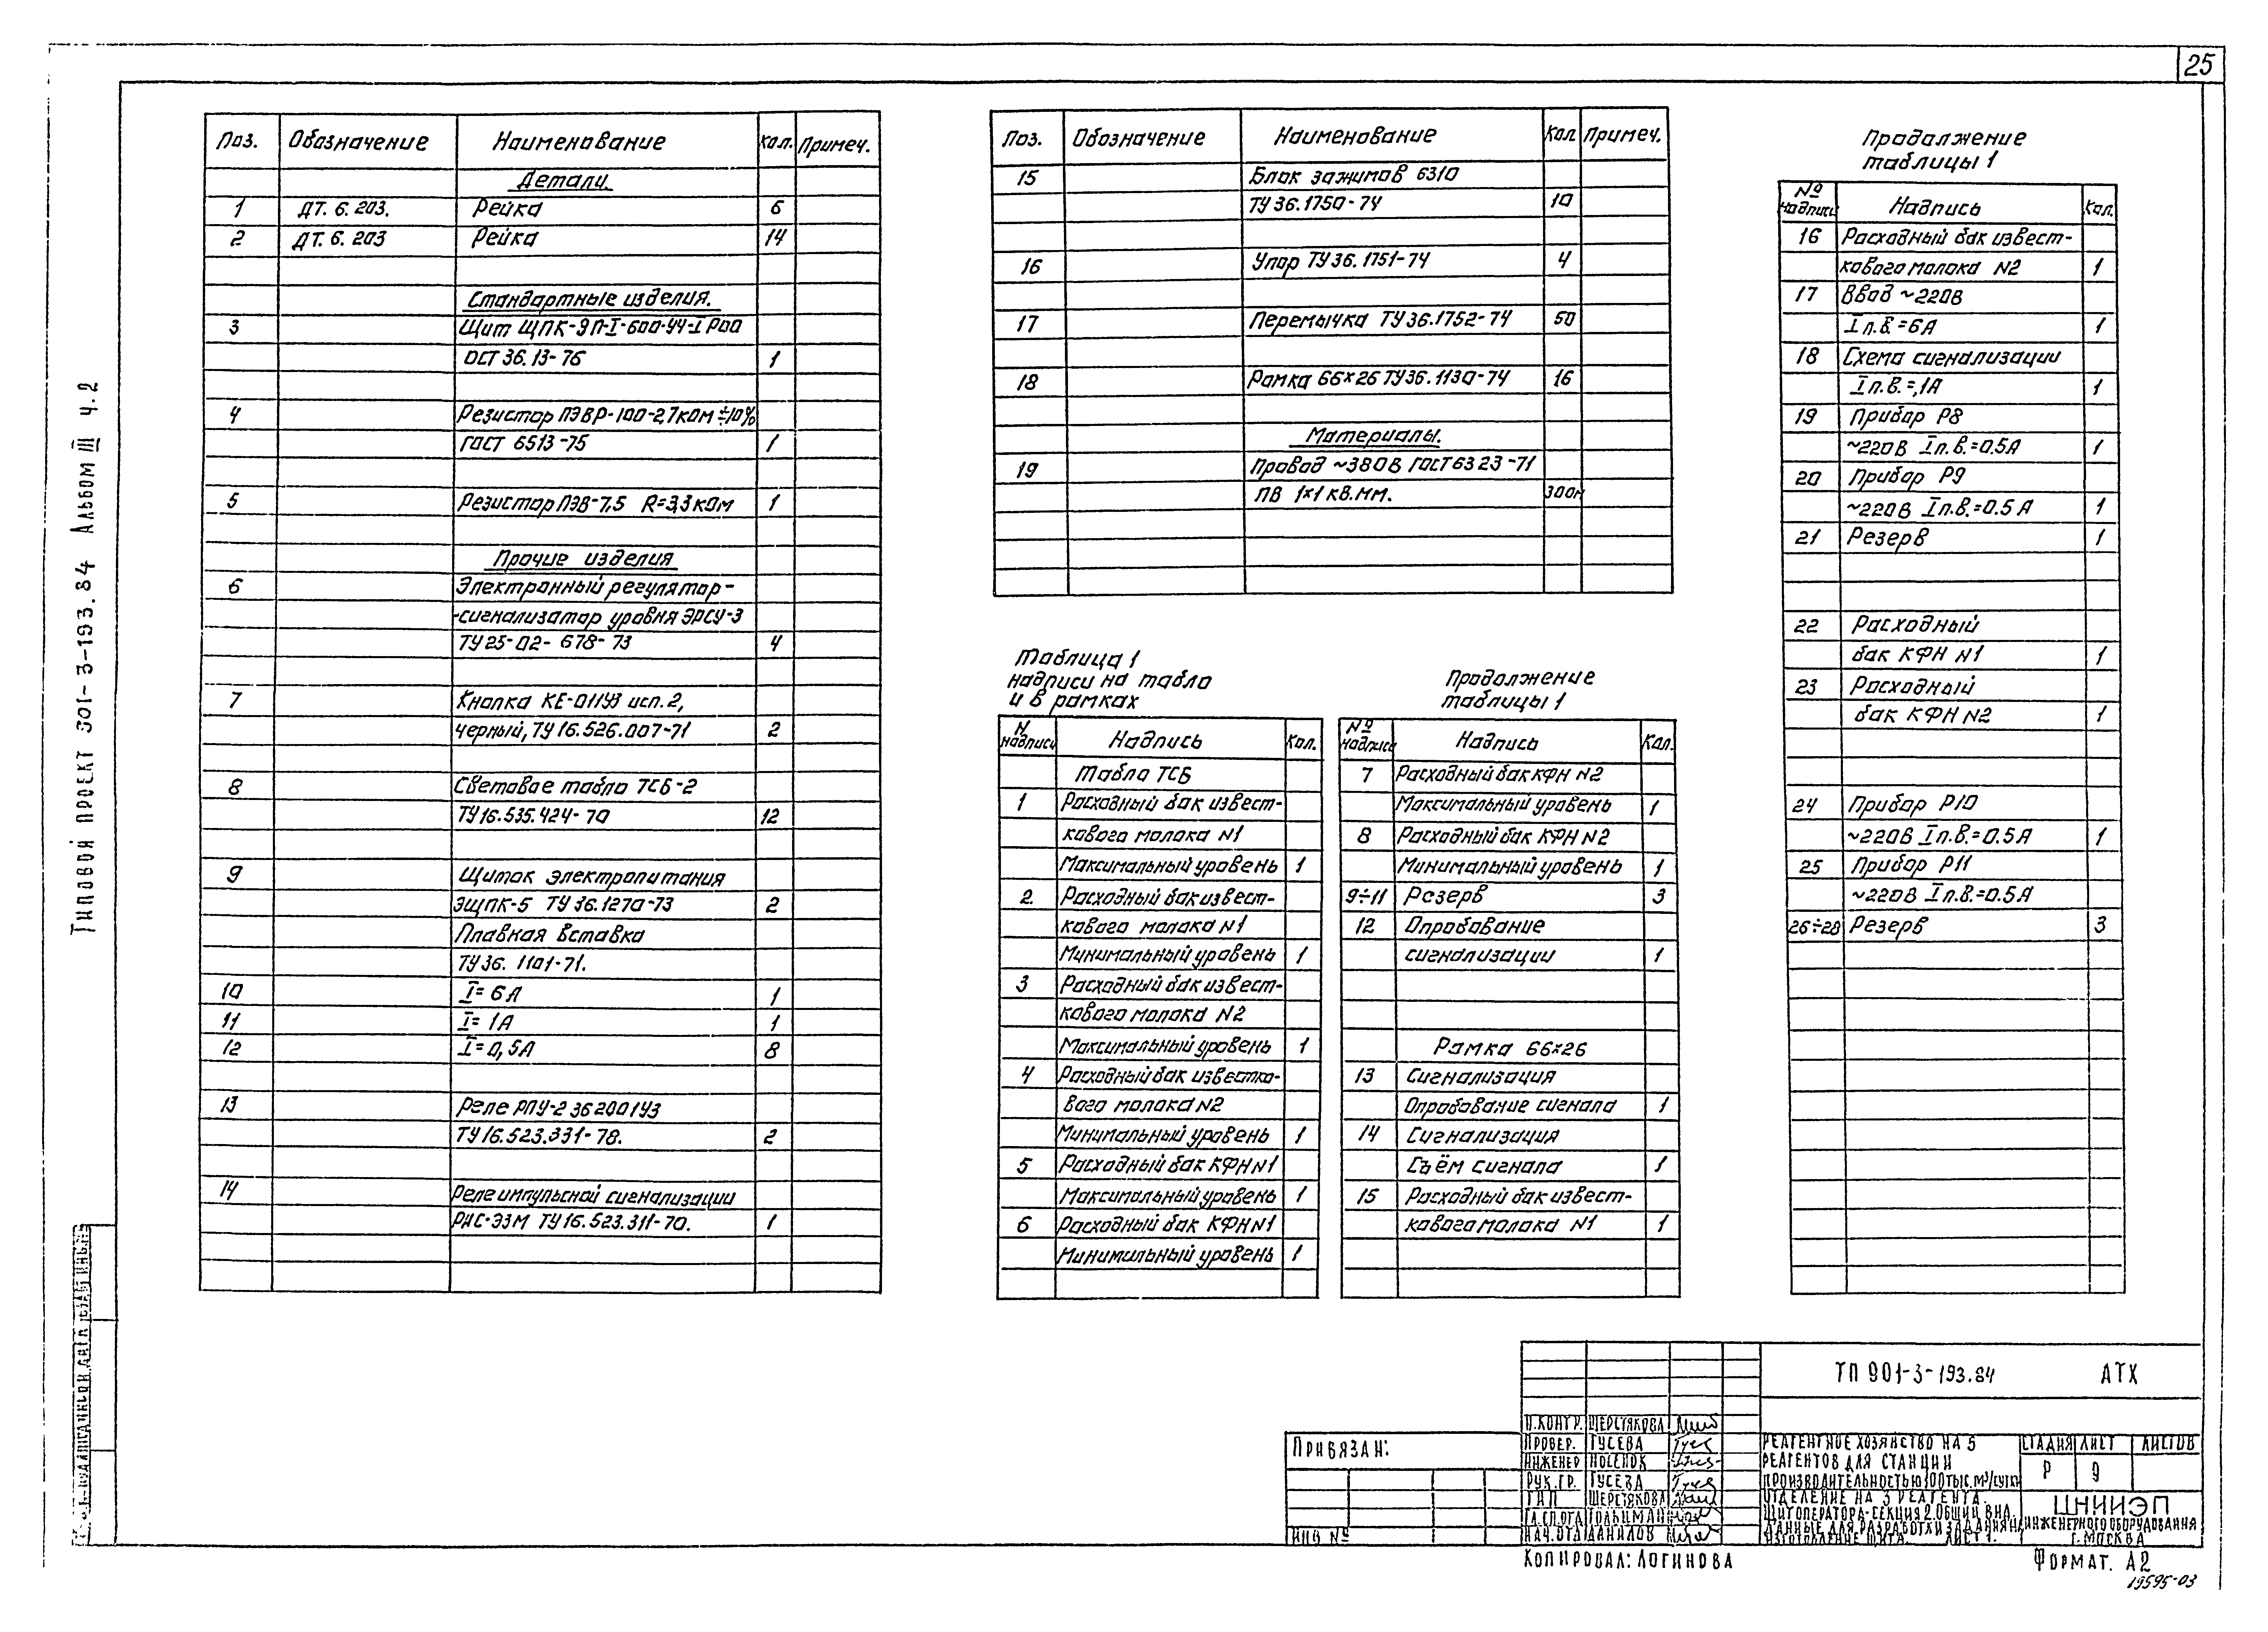 25
Типовой проект 301-3-193.84 Альбом III ч.2
Поз. Обозначение Наименование Кол. Примеч.
Детали.
1 ДТ. 6. 203. Рейка 6
2 ДТ. 6. 203 Рейка 14
Стандартные изделия.
3 Щит ЩПК-ЗП-I-600-У4-IР00
ОСТ 36.13-76 1
4 Резистор ПЭВР-100-2,7ком ÷10%
ГОСТ 6513-75 1
5 Резистор ПЭВ-7,5 R=3,3ком 1
Прочие изделия
6 Электронный регулятор-
-сигнализатор уровня ЭРСУ-3
ТУ25-02-678-73 4
7 Кнопка КЕ-011У3 исп.2,
черный, ТУ16.526.007-71 2
8 Световое табло ТСБ-2
ТУ16.535.424-70 12
9 Щиток электропитания
ЭЩПК-5 ТУ 36.1270-73 2
Плавная вставка
ТУ36.1101-71.
10 I=6А 1
11 I=1А 1
12 I=0,5А 8
13 Реле РПУ-2 36200 1У3
ТУ16.523.331-78. 2
14 Реле импульсной сигнализации
РИС-Э3М ТУ16.523.311-70. 1
Поз. Обозначение Наименование Кол. Примеч.
15 Блок зажимов 6310
ТУ36.1750-74 10
16 Упор ТУ36.1751-74 4
17 Перемычка ТУ36.1752-74 50
18 Рамка 66×26 ТУ36.1130-74 16
Материалы.
19 Провод ~380В ГОСТ6323-71
ПВ 1×1 кв.мм. 300м
Таблица 1
надписи на табло
и в рамках
N надписи Надпись Кол.
Табло ТСБ
1 Расходный бак извест-
кового молока N1
Максимальный уровень 1
2 Расходный бак извест-
кового молока N1
Минимальный уровень 1
3 Расходный бак извест-
кового молока N2
Максимальный уровень 1
4 Расходный бак известко-
вого молока N2
Минимальный уровень 1
5 Расходный бак КФН N1
Максимальный уровень 1
6 Расходный бак КФН N1
Минимильный уровень 1
Продолжение
таблицы 1
№ надписи Надпись Кол.
7 Расходный бак КФН N2
Максимальный уровень 1
8 Расходный бак КФН N2
Минимальный уровень 1
9÷11 Резерв 3
12 Опробование
сигнализации 1
Рамка 66×26
13 Сигнализация
Опробование сигнала 1
14 Сигнализация
Съём сигнала 1
15 Расходный бак извест-
кового молока N1 1
Продолжение
таблицы 1
№ надписи Надпись Кол.
16 Расходный бак извест-
кового молока N2 1
17 Ввод ~220В
Iп.в.=6А 1
18 Схема сигнализации
Iп.в.=,1А 1
19 Прибор Р8
~220В Iп.в.=0.5А 1
20 Прибор Р9
~220В Iп.в.=0.5А 1
21 Резерв 1
22 Расходный
бак КФН N1 1
23 Расходный
бак КФН N2 1
24 Прибор Р10
~220В Iп.в.=0.5А 1
25 Прибор Р11
~220В Iп.в.=0.5А
26÷28 Резерв 3
Привязан:
Инв №
ТП 901-3-193.84 АТХ
Н.контр. Шерстякова
Провер. Гусева
Инженер Носенок
Рук.гр. Гусева
ГИП Шерстякова
Гл.сп.отд Гольцман
Нач.отд Данилов
Реагентное хозяйство на 5
реагентов для станции
производительностью 100тыс.м³/сутки
Отделение на 3 реагента.
Щит оператора-секция 2. Общий вид.
Данные для разработки задания на
изготовление щита. Лист 1.
Стадия Лист Листов
Р 9
ЦНИИЭП
инженерного оборудования
г. Москва
Копировал: Логинова
Формат. А2
19595-03